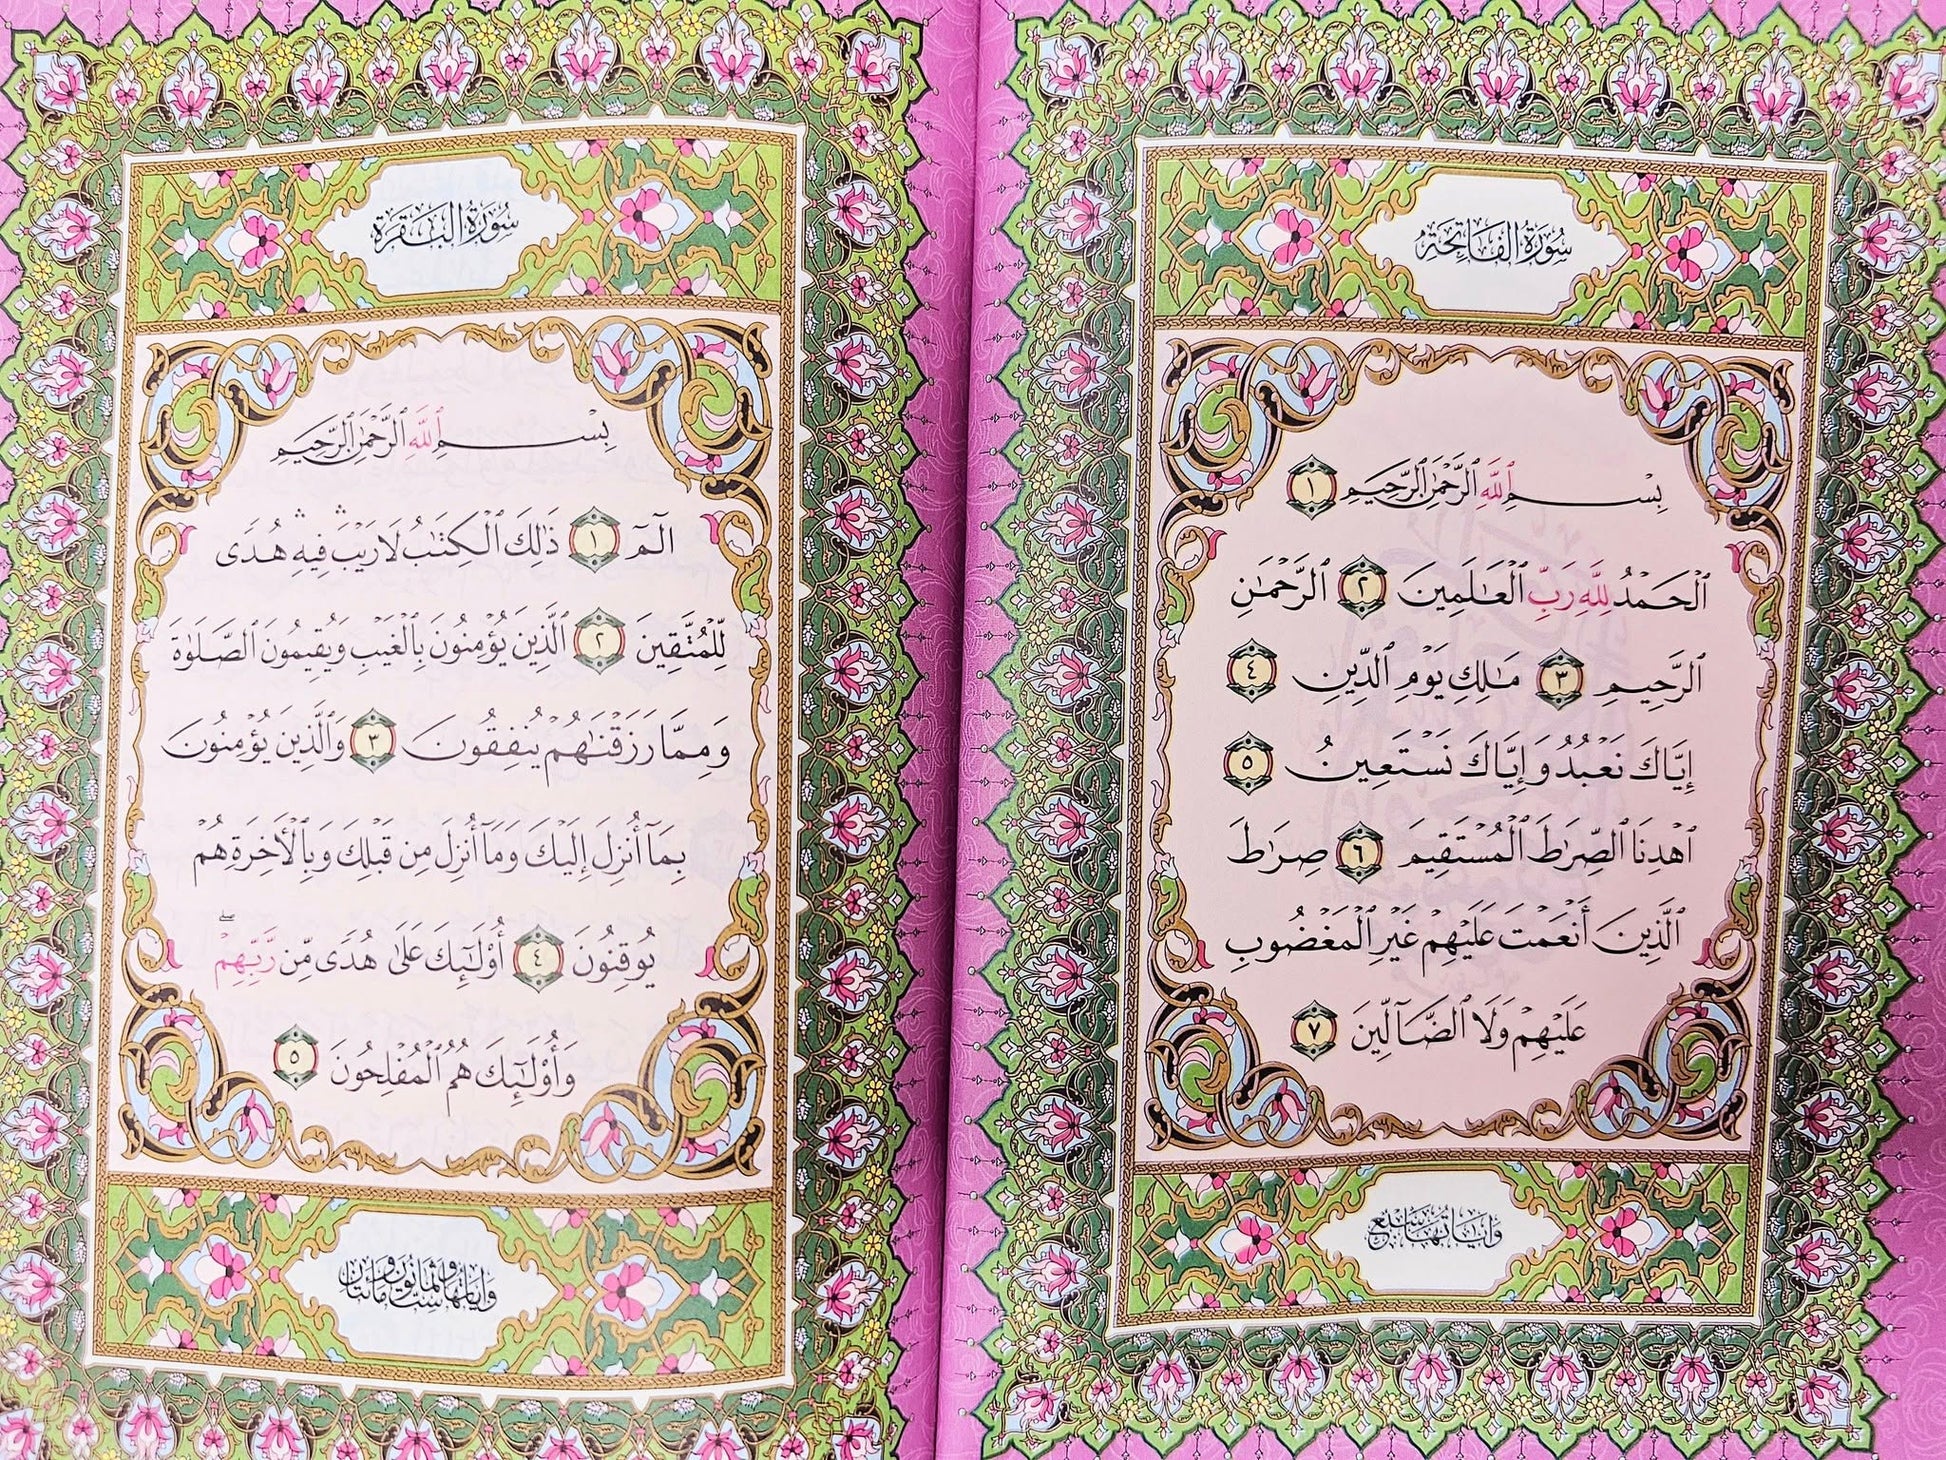 سُورَةُ الفَاتِحَةِ
بِسْمِ ٱللَّهِ ٱلرَّحْمَٰنِ ٱلرَّحِيمِ ١
ٱلْحَمْدُ لِلَّهِ رَبِّ ٱلْعَٰلَمِينَ ٢ ٱلرَّحْمَٰنِ
ٱلرَّحِيمِ ٣ مَٰلِكِ يَوْمِ ٱلدِّينِ ٤
إِيَّاكَ نَعْبُدُ وَإِيَّاكَ نَسْتَعِينُ ٥
ٱهْدِنَا ٱلصِّرَٰطَ ٱلْمُسْتَقِيمَ ٦ صِرَٰطَ
ٱلَّذِينَ أَنْعَمْتَ عَلَيْهِمْ غَيْرِ ٱلْمَغْضُوبِ
عَلَيْهِمْ وَلَا ٱلضَّآلِّينَ ٧
وَايَاتُهَا سَبْعٌ
سُورَةُ البَقَرَةِ
بِسْمِ ٱللَّهِ ٱلرَّحْمَٰنِ ٱلرَّحِيمِ
الٓمٓ ١ ذَٰلِكَ ٱلْكِتَٰبُ لَا رَيْبَ ۛ فِيهِ ۛ هُدًى
لِّلْمُتَّقِينَ ٢ ٱلَّذِينَ يُؤْمِنُونَ بِٱلْغَيْبِ وَيُقِيمُونَ ٱلصَّلَوٰةَ
وَمِمَّا رَزَقْنَٰهُمْ يُنفِقُونَ ٣ وَٱلَّذِينَ يُؤْمِنُونَ
بِمَآ أُنزِلَ إِلَيْكَ وَمَآ أُنزِلَ مِن قَبْلِكَ وَبِٱلْأَخِرَةِ هُمْ
يُوقِنُونَ ٤ أُو۟لَٰٓئِكَ عَلَىٰ هُدًى مِّن رَّبِّهِمْ ۖ
وَأُو۟لَٰٓئِكَ هُمُ ٱلْمُفْلِحُونَ ٥
وَايَاتُهَا سِتٌّ وَثَمَانُونَ وَمِائَتَانِ